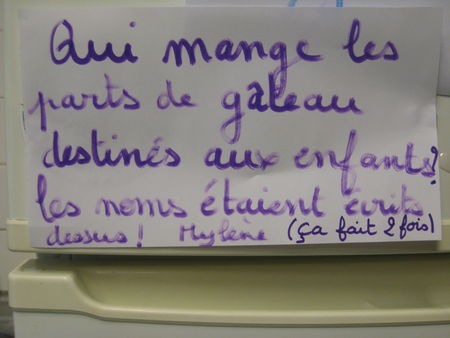 Qui mange les
parts de gâteau
destinés aux enfants?
les noms étaient écrits
dessus! Mylène (ça fait 2 fois)